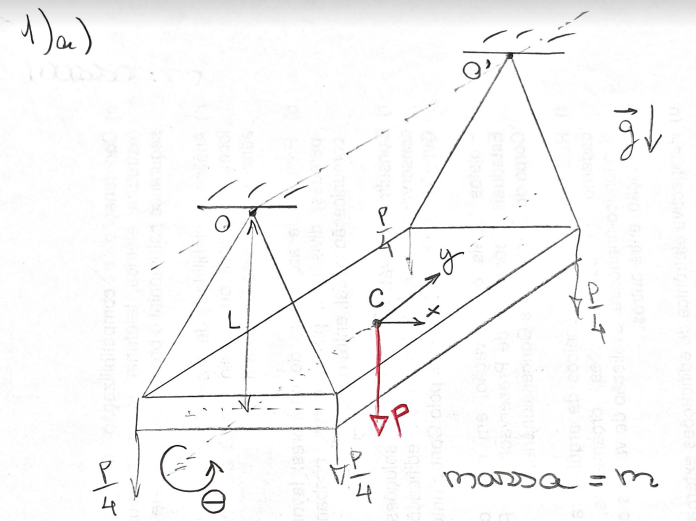 1)a)
O'
g
O
P/4
y
C
x
L
P/4
P
P/4
P/4
θ
massa = m